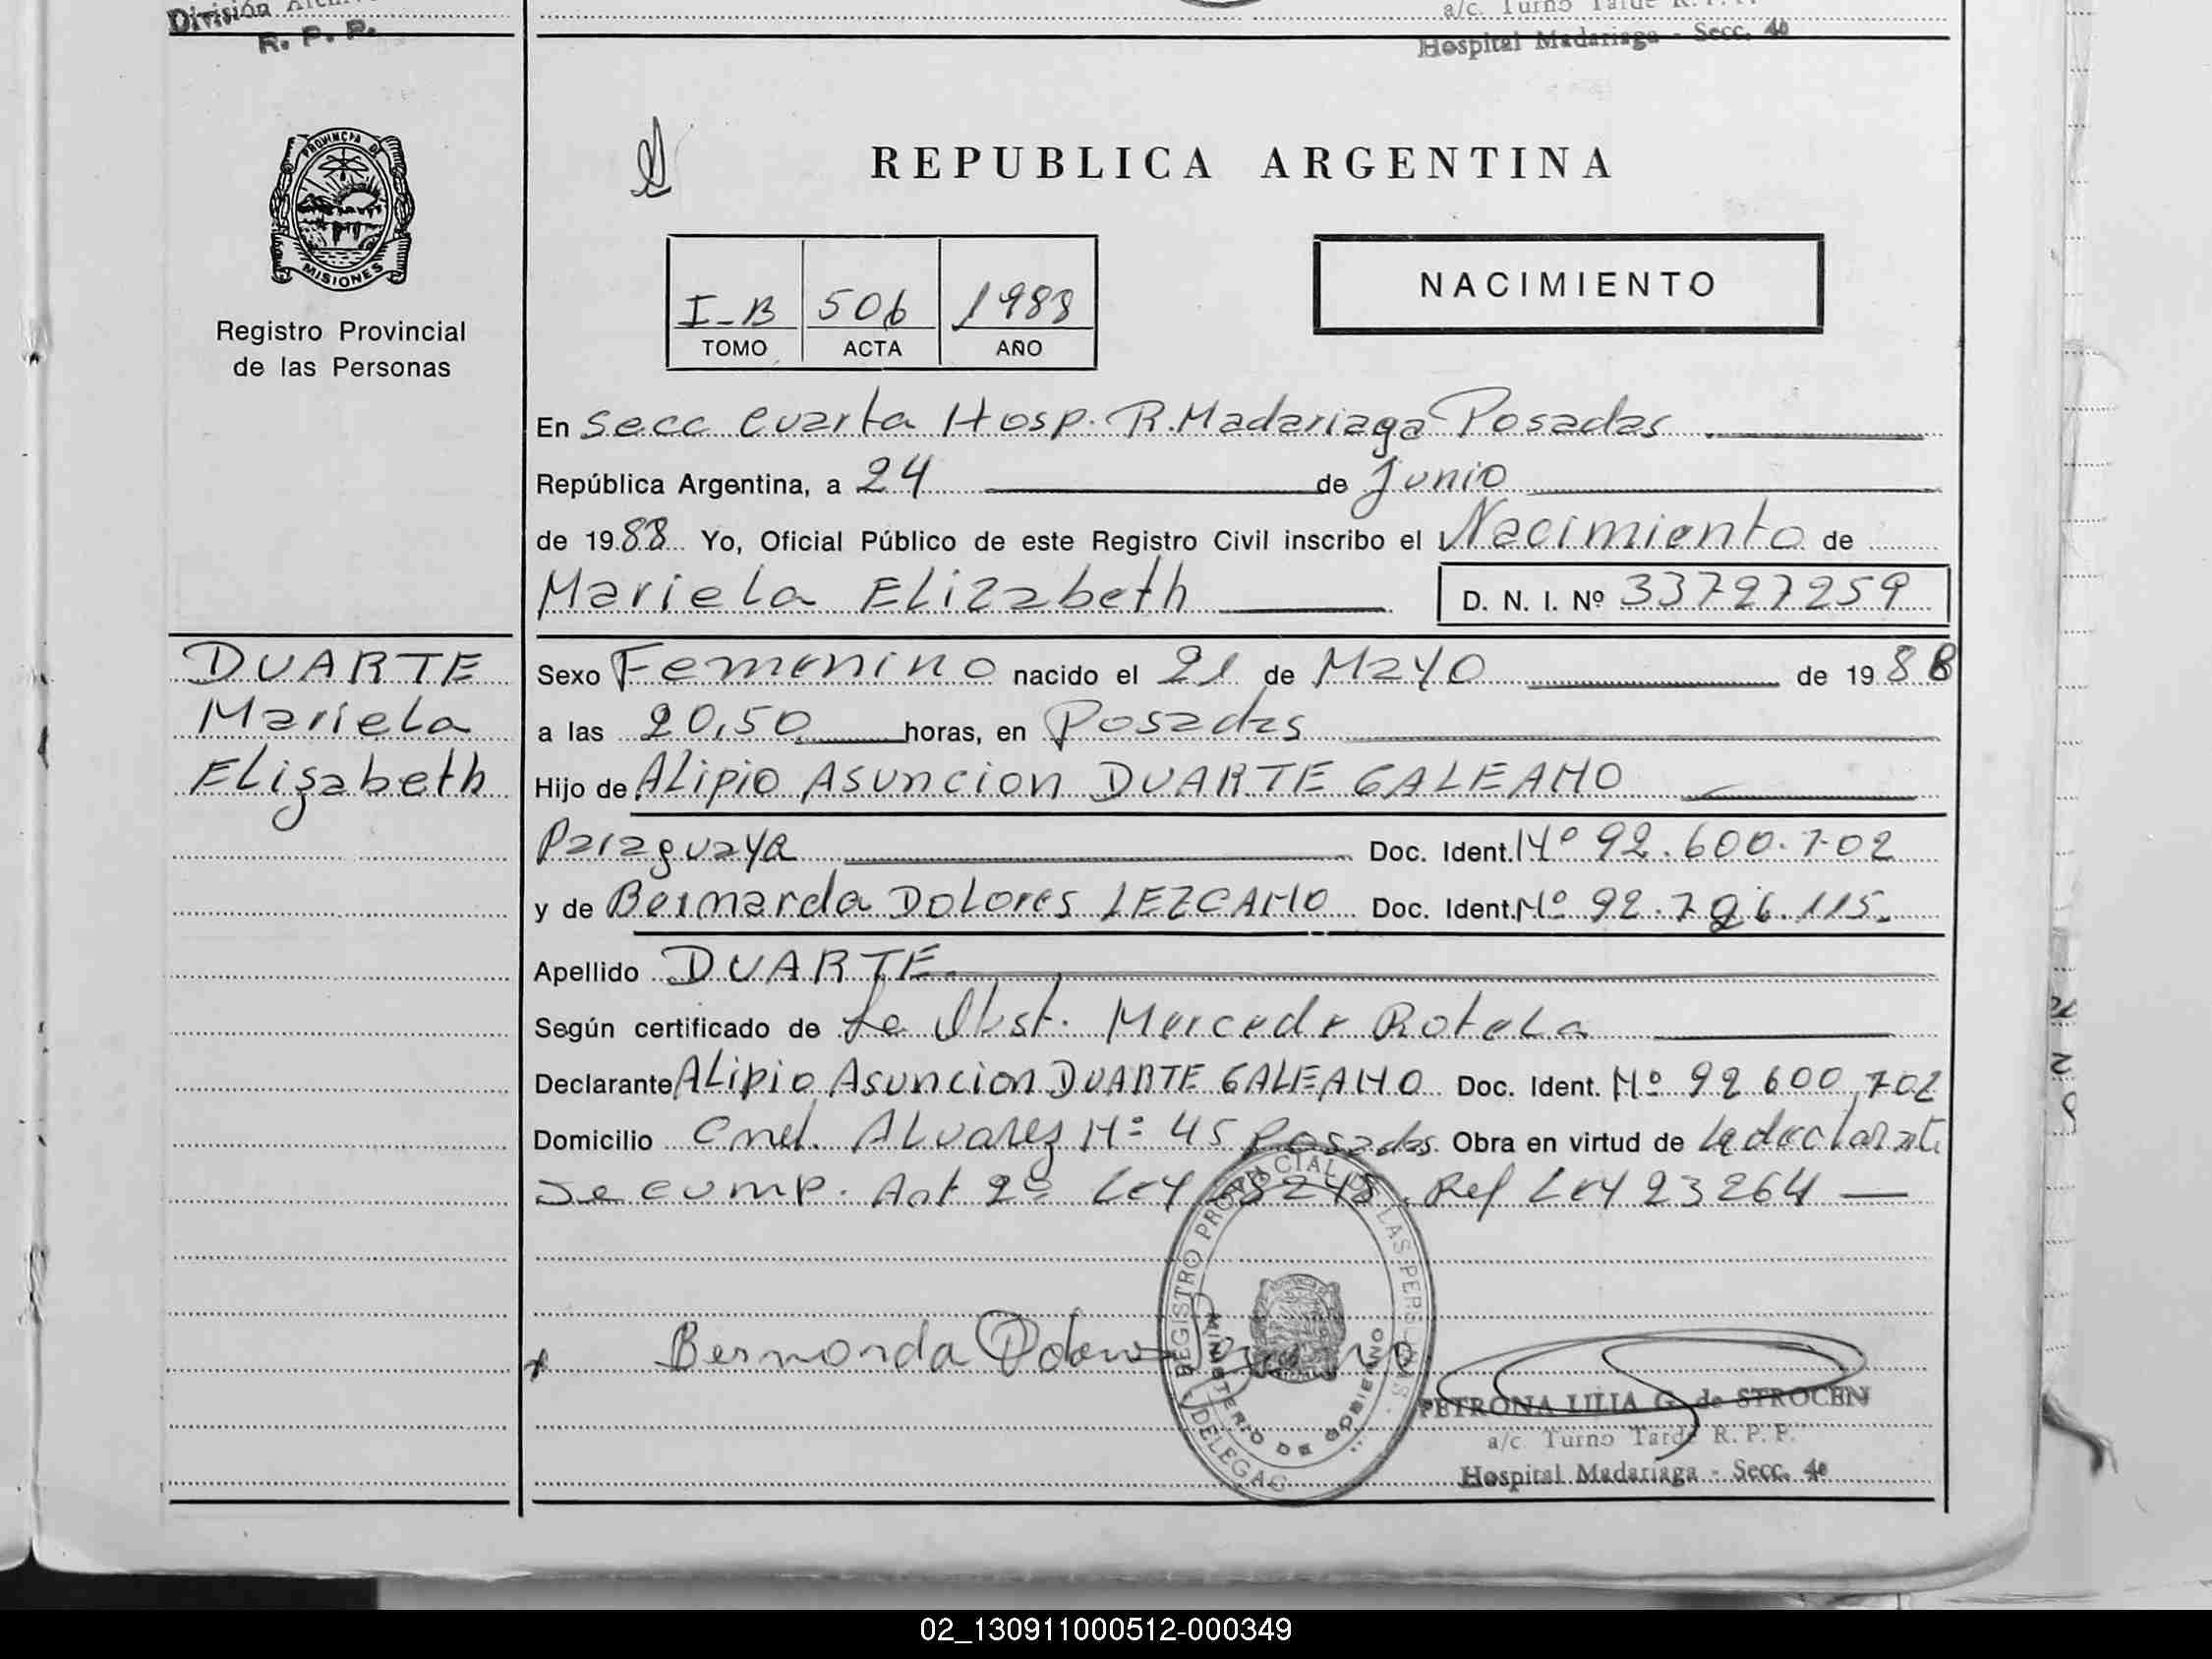 División
R. P. P.
a/c. Turno Tarde R. P. P.
Hospital Madariaga - Secc. 4º
PROVINCIA DE
MISIONES
Registro Provincial
de las Personas
REPUBLICA ARGENTINA
I-B 506 1988
TOMO ACTA AÑO
NACIMIENTO
En Secc Cuarta Hosp. R. Madariaga Posadas
República Argentina, a 24 de Junio
de 1988 Yo, Oficial Público de este Registro Civil inscribo el Nacimiento de
Mariela Elizabeth D. N. I. Nº 33727259
DUARTE
Mariela
Elizabeth
Sexo Femenino nacido el 21 de Mayo de 1988
a las 20,50 horas, en Posadas
Hijo de Alipio Asuncion DUARTE GALEANO
Paraguaya Doc. Ident. Nº 92.600.702
y de Bernarda Dolores LEZCANO Doc. Ident. Nº 92.796.115.
Apellido DUARTE
Según certificado de La Obst. Mercede Rotela
Declarante Alipio Asuncion DUARTE GALEANO Doc. Ident. Nº 92 600 702
Domicilio Cnel. Alvarez Nº 45 Posadas Obra en virtud de la declarante
se cump. Art 2º Ley 18248. Ref Ley 23264
REGISTRO PROVINCIAL DE LAS PERSONAS
MINISTERIO DE GOBIERNO
DELEGAC
Bernarda Dolores
PETRONA LILIA G. de STROCEN
a/c. Turno Tarde R. P. P.
Hospital Madariaga - Secc. 4º
02_130911000512-000349